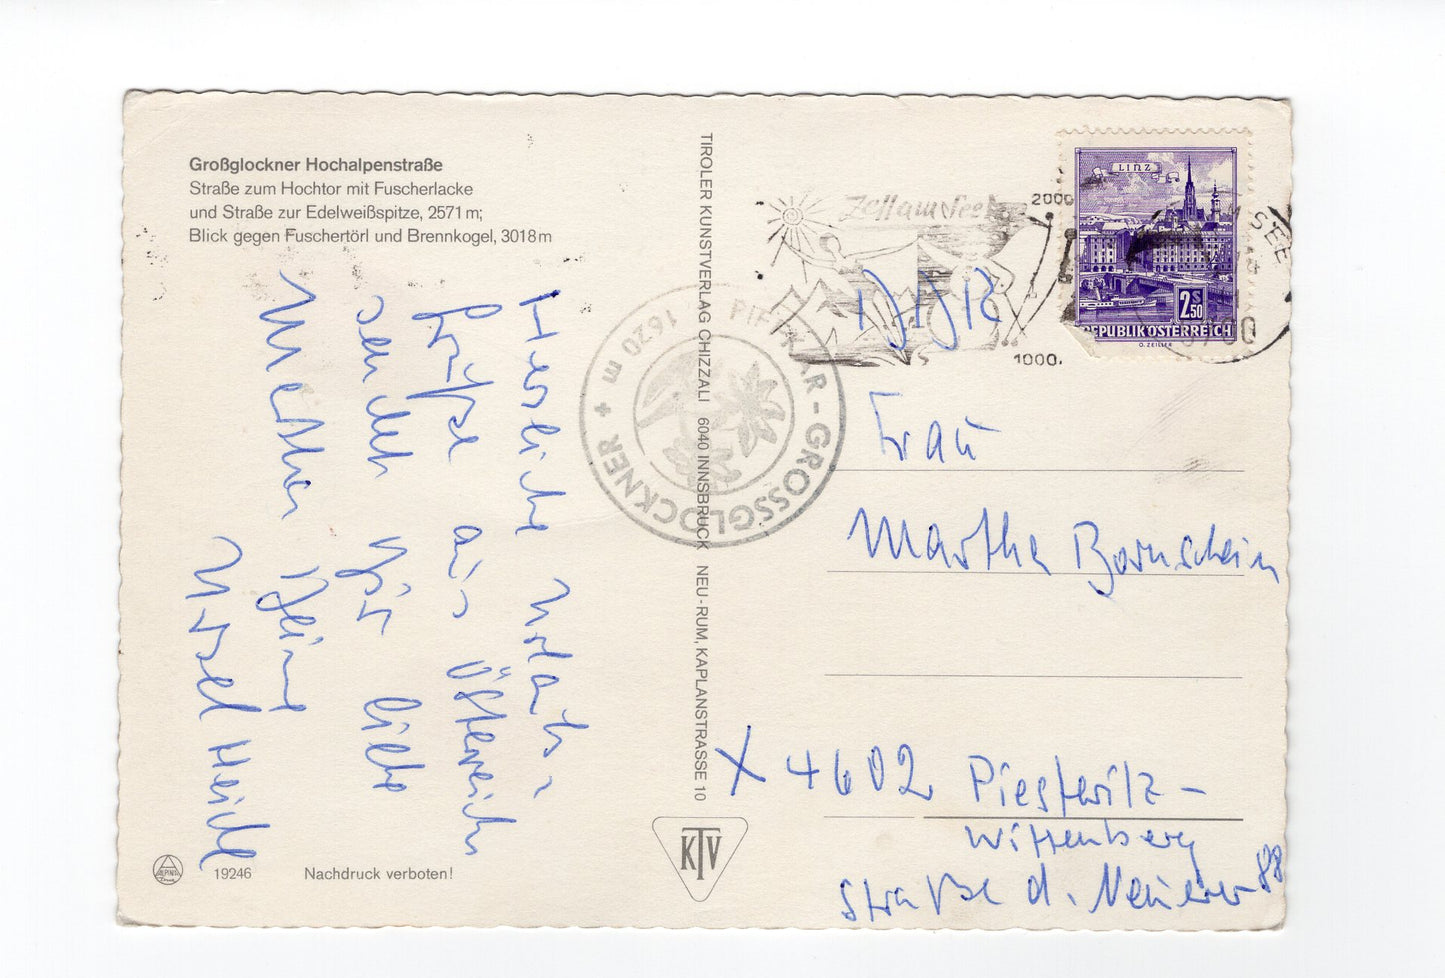 Großglockner Hochalpenstraße
Straße zum Hochtor mit Fuscherlacke
und Straße zur Edelweißspitze, 2571 m;
Blick gegen Fuschertörl und Brennkogel, 3018 m
Herzliche Urlaubs-
grüße aus Österreich
sendet Dir liebe
Martha Deine
Ursel Heichl
19246
Nachdruck verboten!
TIROLER KUNSTVERLAG CHIZZALI 6040 INNSBRUCK NEU-RUM, KAPLANSTRASSE 10
KTV
1620 m
GROSSGLOCKNER +
Zell am See
2000
1000
M SEE
LINZ
2 S 50
REPUBLIK ÖSTERREICH
O. ZEILLER
DDR
Frau
Martha Bornschein
X 4602 Piesteritz-
Wittenberg
Straße d. Neuerer 88